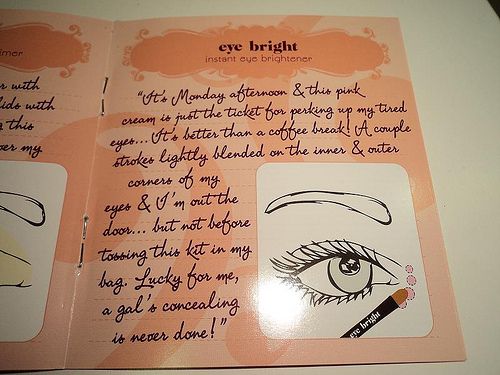 eye bright
instant eye brightener
"It's Monday afternoon & this pink
cream is just the ticket for perking up my tired
eyes... It's better than a coffee break! A couple
strokes lightly blended on the inner & outer
corners of my
eyes & I'm out the
door... but not before
tossing this kit in my
bag. Lucky for me,
a gal's concealing
is never done!"
eye bright
with
lids with
this
my